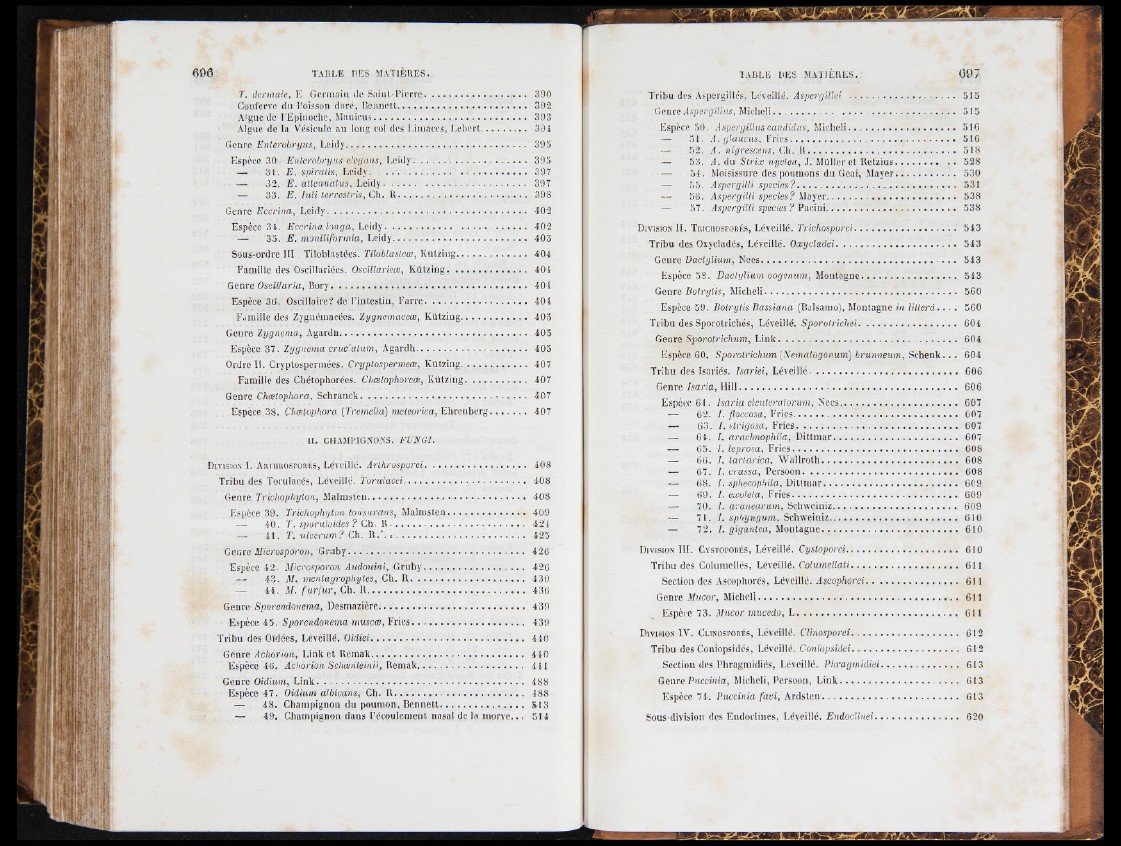 696 TABLE DES MATIÈRES.
T. dermaie, E Germain de Saint-Pierre. 390
Conferve du Poisson doré, Bennett. 392
Algue de l'Epinoche, Manicus. 393
Algue de la Vésicule au long col des Limaces, Lebert. 394
Genre Enterobryus, Leidy. 395
Espèce 30. Enterobryus elegans, Leidy. 395
— 31. E. spiralis, Leidy. 397
— 32. E. attenuatus, Leidy. 397
— 33. E. Iuli terrestris, Ch. R. 398
Genre Eccrina, Leidy. 402
Espèce 34. Eccrina longa, Leidy. 402
— 35. E. moniliformis, Leidy. 403
Sous-ordre III Tiloblastées. Tiloblasteæ, Kützing. 404
Famille des Oscillariées. Oscillarieæ, Kützing. 404
Genre Oscillaria, Bory. 404
Espèce 36. Oscillaire? de l'intestin, Farre. 404
Famille des Zygnémacées. Zygnemaceæ, Kützing. 405
Genre Zygnema, Agardh. 405
Espèce 37. Zygnema cruciatum, Agardh. 405
Ordre II. Cryptospermées. Cryptospermeæ, Kützing. 407
Famille des Chétophorées. Chætophoreæ, Kützing. 407
Genre Chætophora, Schranck. 407
Espèce 38. Chætophora (Tremella) meteorica, Ehrenberg. 407
II. CHAMPIGNONS. FUNGI.
DIVISION I. ARTHROSPORÉS, Léveillé. Arthrosporei. 408
Tribu des Torulacés, Léveillé. Torulacei. 408
Genre Trichophyton, Malmsten. 408
Espèce 39. Trichophyton tonsurans, Malmsten. 409
— 40. T. sporuloides? Ch. R. 424
— 41. T. ulcerum? Ch. R. 425
Genre Microsporon, Gruby. 426
Espèce 42. Microsporon Audouini, Gruby. 426
— 43. M. mentagrophytes, Ch. R. 430
— 44. M. furfur, Ch. R. 436
Genre Sporendonema, Desmazière. 439
Espèce 45. Sporendonema muscæ, Fries. 439
Tribu des Oïdées, Léveillé, Oidiei. 440
Genre Achorion, Link et Remak. 440
Espèce 46. Achorion Schœnleinii, Remak. 441
Genre Oidium, Link. 488
Espèce 47. Oidium albicans, Ch. R. 488
— 48. Champignon du poumon, Bennett. 513
— 49. Champignon dans l'écoulement nasal de la morve. 514
TABLE DES MATIÈRES. 697
Tribu des Aspergillés, Léveillé. Aspergillei 515
Genre Aspergillus, Micheli. 515
Espèce 50. Aspergillus candidus, Micheli. 516
— 51. A. glaucus, Fries. 516
— 52. A. nigrescens, Ch. R. 518
— 53. A. du Strix nyctea, J. Müller et Retzius. 528
— 54. Moisissure des poumons du Geai, Mayer. 530
— 55. Aspergilli species? 531
— 56. Aspergilli species? Mayer. 538
— 57. Aspergilli species? Pacini. 538
DIVISION II. TRICHOSPORÉS, Léveillé. Trichosporei. 543
Tribu des Oxycladés, Léveillé. Oxycladei. 543
Genre Dactylium, Nees. 543
Espèce 58. Dactylium oogenum, Montagne. 543
Genre Botrytis, Micheli. 560
Espèce 59. Botrytis Bassiana (Balsamo), Montagne in litterâ. 560
Tribu des Sporotrichés, Léveillé. Sporotrichei. 604
Genre Sporotrichum, Link. 604
Espèce 60. Sporotrichum (Nematogonum) brunneum, Schenk. 604
Tribu des Isariés. Isariei, Léveillé. 606
Genre Isaria, Hill. 606
Espèce 61. Isaria eleuteratorum, Nees. 607
— 62. I. floccosa, Fries. 607
— 63. I. strigosa, Fries. 607
— 64. I. arachnophila, Dittmar. 607
— 65. I. leprosa, Fries. 608
— 66. I. tartarica, Wallroth. 608
— 67. I. crassa, Persoon. 608
— 68. I. sphecophila, Dittmar. 609
— 69. I. exoleta, Fries. 609
— 70. I. aranearum, Schweiniz. 609
— 71. I. sphyngum, Schweiniz. 610
— 72. I. gigantea, Montagne. 610
DIVISION III. CYSTOPORÉS, Léveillé. Cystoporei. 610
Tribu des Columellés, Léveillé. Columellati. 611
Section des Ascophorés, Léveillé. Ascophorei. 611
Genre Mucor, Micheli. 611
Espèce 73. Mucor mucedo, L. 611
DIVISION IV. CLINOSPORÉS, Léveillé. Clinosporei. 612
Tribu des Coniopsidés, Léveillé. Coniopsidei. 612
Section des Phragmidiés, Léveillé. Phragmidiei. 613
Genre Puccinia, Micheli, Persoon, Link. 613
Espèce 74. Puccinia favi, Ardsten. 613
Sous-division des Endoclines, Léveillé. Endoclinei. 620